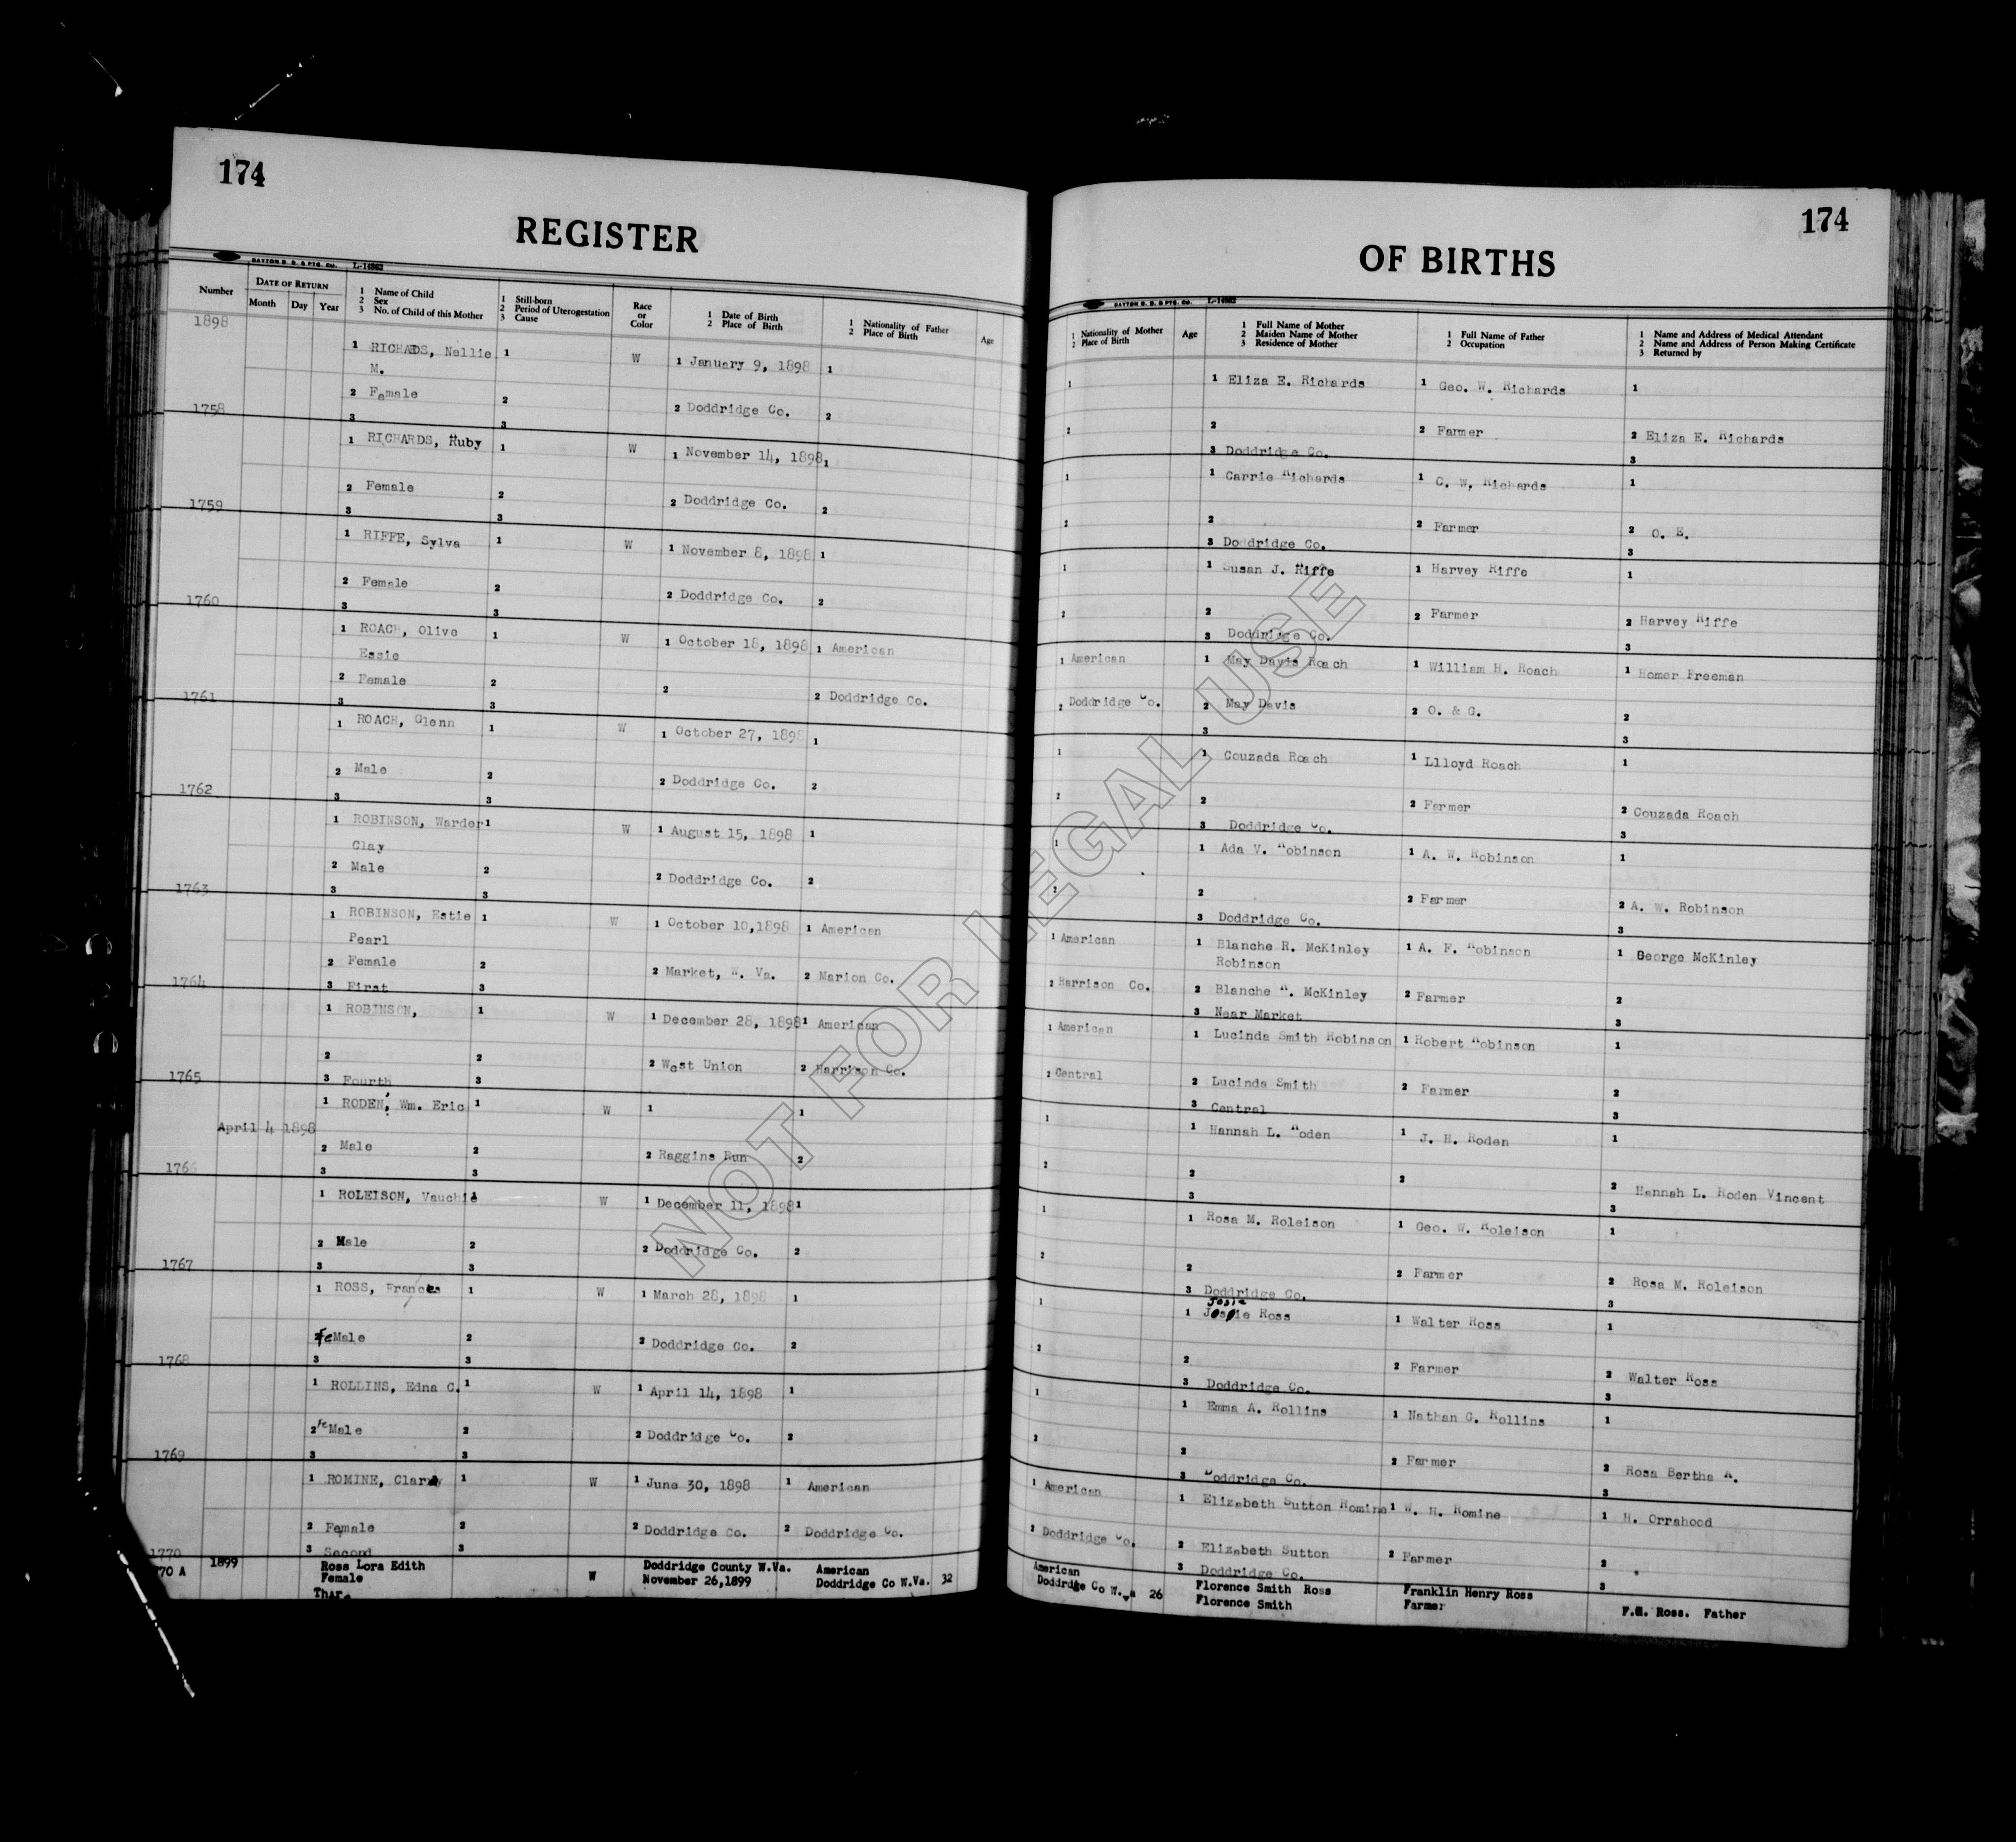 174
REGISTER
DAYTON B. B. & PTG. CO. L-14862
Number
DATE OF RETURN
Month Day Year
1 Name of Child
2 Sex
3 No. of Child of this Mother
1 Still-born
2 Period of Uterogestation
3 Cause
Race
or
Color
1 Date of Birth
2 Place of Birth
1 Nationality of Father
2 Place of Birth
Age
1898
1 RICHARDS, Nellie 1 W 1 January 9, 1898 1
M.
2 Female 2 2 Doddridge Co. 2
1758 3 3
1 RICHARDS, Ruby 1 W 1 November 14, 1898 1
2 Female 2 2 Doddridge Co. 2
1759 3 3
1 RIFFE, Sylva 1 W 1 November 8, 1898 1
2 Female 2 2 Doddridge Co. 2
1760 3 3
1 ROACH, Olive 1 W 1 October 18, 1898 1 American
Essie
2 Female 2 2 2 Doddridge Co.
1761 3 3
1 ROACH, Glenn 1 W 1 October 27, 1898 1
2 Male 2 2 Doddridge Co. 2
1762 3 3
1 ROBINSON, Warder 1 W 1 August 15, 1898 1
Clay
2 Male 2 2 Doddridge Co. 2
1763 3 3
1 ROBINSON, Estie 1 W 1 October 10,1898 1 American
Pearl
2 Female 2 2 Market, W. Va. 2 Marion Co.
1764 3 First 3
1 ROBINSON, 1 W 1 December 28, 1898 1 American
2 2 2 West Union 2 Harrison Co.
1765 3 Fourth 3
1 RODEN, Wm. Eric 1 W 1 1
April 4 1898
2 Male 2 2 Raggins Run 2
1766 3 3
1 ROLEISON, Vauchie 1 W 1 December 11, 1898 1
2 Male 2 2 Doddridge Co. 2
1767 3 3
1 ROSS, Frances 1 W 1 March 28, 1898 1
2 feMale 2 2 Doddridge Co. 2
1768 3 3
1 ROLLINS, Edna C. 1 W 1 April 14, 1898 1
2 feMale 2 2 Doddridge Co. 2
1769 3 3
1 ROMINE, Clara 1 W 1 June 30, 1898 1 American
2 Female 2 2 Doddridge Co. 2 Doddridge Co.
1770 3 Second 3
70 A 1899 Ross Lora Edith Doddridge County W.Va. American
Female W November 26,1899 Doddridge Co W.Va. 32
174
OF BIRTHS
DAYTON B. B. & PTG. CO. L-14862
1 Nationality of Mother
2 Place of Birth
Age
1 Full Name of Mother
2 Maiden Name of Mother
3 Residence of Mother
1 Full Name of Father
2 Occupation
1 Name and Address of Medical Attendant
2 Name and Address of Person Making Certificate
3 Returned by
1 1 Eliza E. Richards 1 Geo. W. Richards 1
2 2 2 Farmer 2 Eliza E. Richards
3 Doddridge Co. 3
1 1 Carrie Richards 1 C. W. Richards 1
2 2 2 Farmer 2 O. E.
3 Doddridge Co. 3
1 1 Susan J. Riffe 1 Harvey Riffe 1
2 2 2 Farmer 2 Harvey Riffe
3 Doddridge Co. 3
1 American 1 May Davis Roach 1 William H. Roach 1 Homer Freeman
2 Doddridge Co. 2 May Davis 2 O. & G. 2
3 3
1 1 Couzada Roach 1 Llloyd Roach 1
2 2 2 Farmer 2 Couzada Roach
3 Doddridge Co. 3
1 1 Ada V. Robinson 1 A. W. Robinson 1
2 2 2 Farmer 2 A. W. Robinson
3 Doddridge Co. 3
1 American 1 Blanche R. McKinley 1 A. F. Robinson 1 George McKinley
Robinson
2 Harrison Co. 2 Blanche R. McKinley 2 Farmer 2
3 Near Market 3
1 American 1 Lucinda Smith Robinson 1 Robert Robinson 1
2 Central 2 Lucinda Smith 2 Farmer 2
3 Central 3
1 1 Hannah L. Roden 1 J. H. Roden 1
2 2 2 2 Hannah L. Roden Vincent
3 3
1 1 Rosa M. Roleison 1 Geo. W. Roleison 1
2 2 2 Farmer 2 Rosa M. Roleison
3 Doddridge Co. 3
Josie
1 1 Ross 1 Walter Ross 1
2 2 2 Farmer 2 Walter Ross
3 Doddridge Co. 3
1 1 Emma A. Rollins 1 Nathan G. Rollins 1
2 2 2 Farmer 2 Rosa Bertha R.
3 Doddridge Co. 3
1 American 1 Elizabeth Sutton Romine 1 W. H. Romine 1 H. Orrahood
2 Doddridge Co. 2 Elizabeth Sutton 2 Farmer 2
3 Doddridge Co. 3
American Florence Smith Ross Franklin Henry Ross
Doddrdge Co W. a 26 Florence Smith Farmer F.H. Ross. Father
NOT FOR LEGAL USE